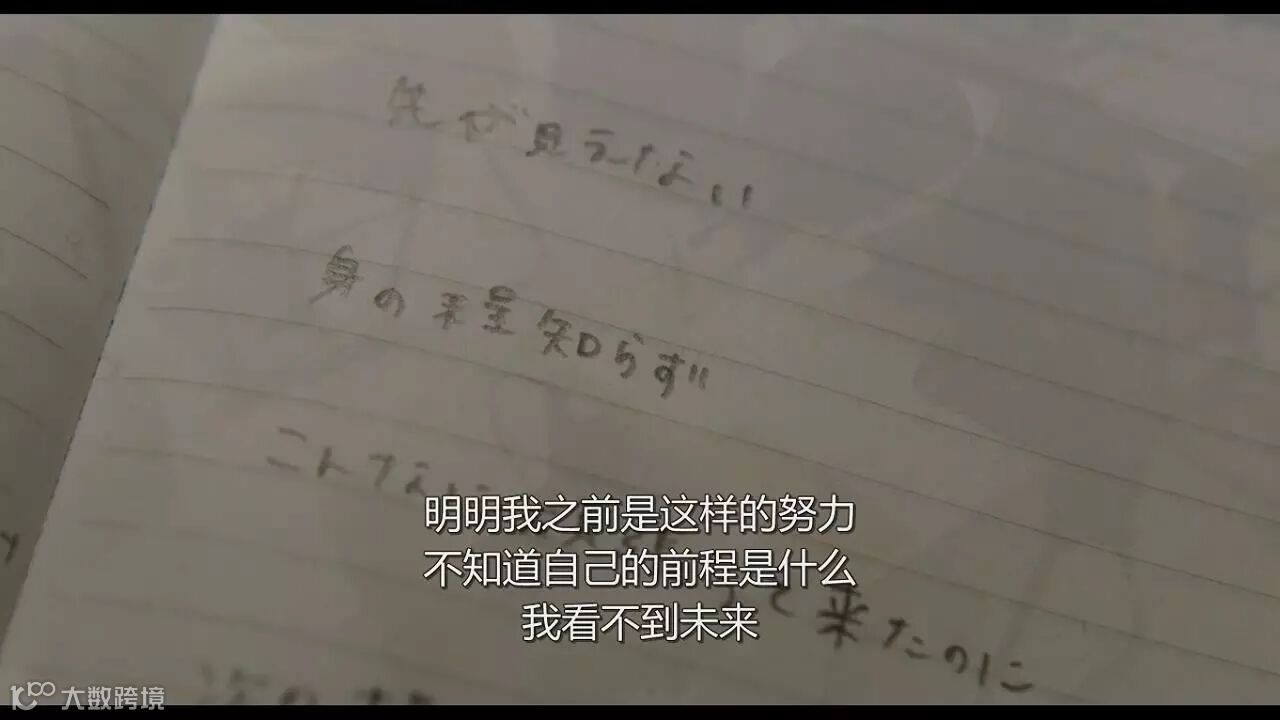 先が見えない
身の程知らず
こんなに
て来たのに
明明我之前是这样的努力
不知道自己的前程是什么
我看不到未来
大数跨境